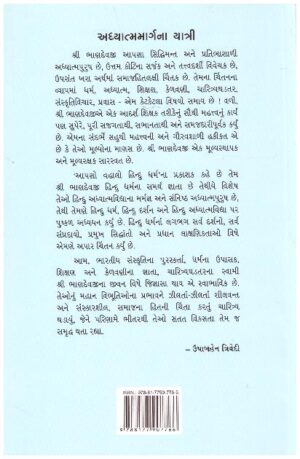 અધ્યાત્મમાર્ગના યાત્રી
શ્રી ભાણદેવજી આપણા સિદ્ધિમન્ત અને પ્રતિભાશાળી
અધ્યાત્મપુરુષ છે, ઉત્તમ કોટિના સર્જક અને તત્ત્વદર્શી વિવેચક છે,
ઉપરાંત ખરા અર્થમાં સમાજહિતલક્ષી ચિંતક છે. તેમના ચિંતનના
વ્યાપમાં ધર્મ, અધ્યાત્મ, શિક્ષણ, કેળવણી, ચારિત્ર્યઘડતર,
સંસ્કૃતિવિચાર, પ્રવાસ - એમ કેટકેટલા વિષયો સમાય છે ! વળી,
શ્રી ભાણદેવજીએ એક આદર્શ શિક્ષક તરીકેનું સૌથી મહત્ત્વનું કાર્ય
પણ સુપેરે, પૂરી સજ્જતાથી, સભાનતાથી અને સમજદારીપૂર્વક કર્યું
છે. એમના સંદર્ભે સહુથી મહત્ત્વની અને ગૌરવશાળી હકીકત એ
છે કે તેઓ મૂલ્યોના માણસ છે. શ્રી ભાણદેવજી એક મૂલ્યસ્થાપક
અને મૂલ્યરક્ષક સારસ્વત છે.
'આપણો વહાલો હિન્દુ ધર્મ'ના પ્રકાશક કહે છે તેમ
શ્રી ભાણદેવજી હિન્દુ ધર્મના સમર્થ જ્ઞાતા છે તેથીયે વિશેષ
તેઓ હિન્દુ અધ્યાત્મવિદ્યાના મર્મજ્ઞ અને સંનિષ્ઠ અધ્યાત્મપુરુષ છે,
તેથી તેમણે હિન્દુ ધર્મ, હિન્દુ દર્શન અને હિન્દુ અધ્યાત્મવિદ્યા પર
પુષ્કળ અધ્યયન કર્યું છે. હિન્દુ ધર્મનાં લગભગ સર્વ દર્શનો, સર્વ
સંપ્રદાયો, પ્રમુખ સિદ્ધાંતો અને પ્રધાન લાક્ષણિકતાઓ વિષે
એમણે અપાર ચિંતન કર્યું છે.
આમ, ભારતીય સંસ્કૃતિના પુરસ્કર્તા, ધર્મના ઉપાસક,
શિક્ષણ અને કેળવણીના જ્ઞાતા, ચારિત્ર્યઘડતરના સ્વામી
શ્રી ભાણદેવજીના જીવન વિષે જિજ્ઞાસા થાય એ સ્વાભાવિક છે.
તેઓનું મહાન વિભૂતિઓના પ્રભાવને ઝીલતાં-ઝીલતાં શીલવન્ત
અને સંસ્કારશીલ, સમાજના હિતની ચિંતા કરતું ચારિત્ર્ય
ઘડાયું, જેને પરિણામે ભીતરથી તેઓ સતત વિકસતા તેમ જ
સમૃદ્ધ થતા રહ્યા.
- ઉષાબહેન ત્રિવેદી
ISBN : 978-81-7790-778-6
9 788177 907786